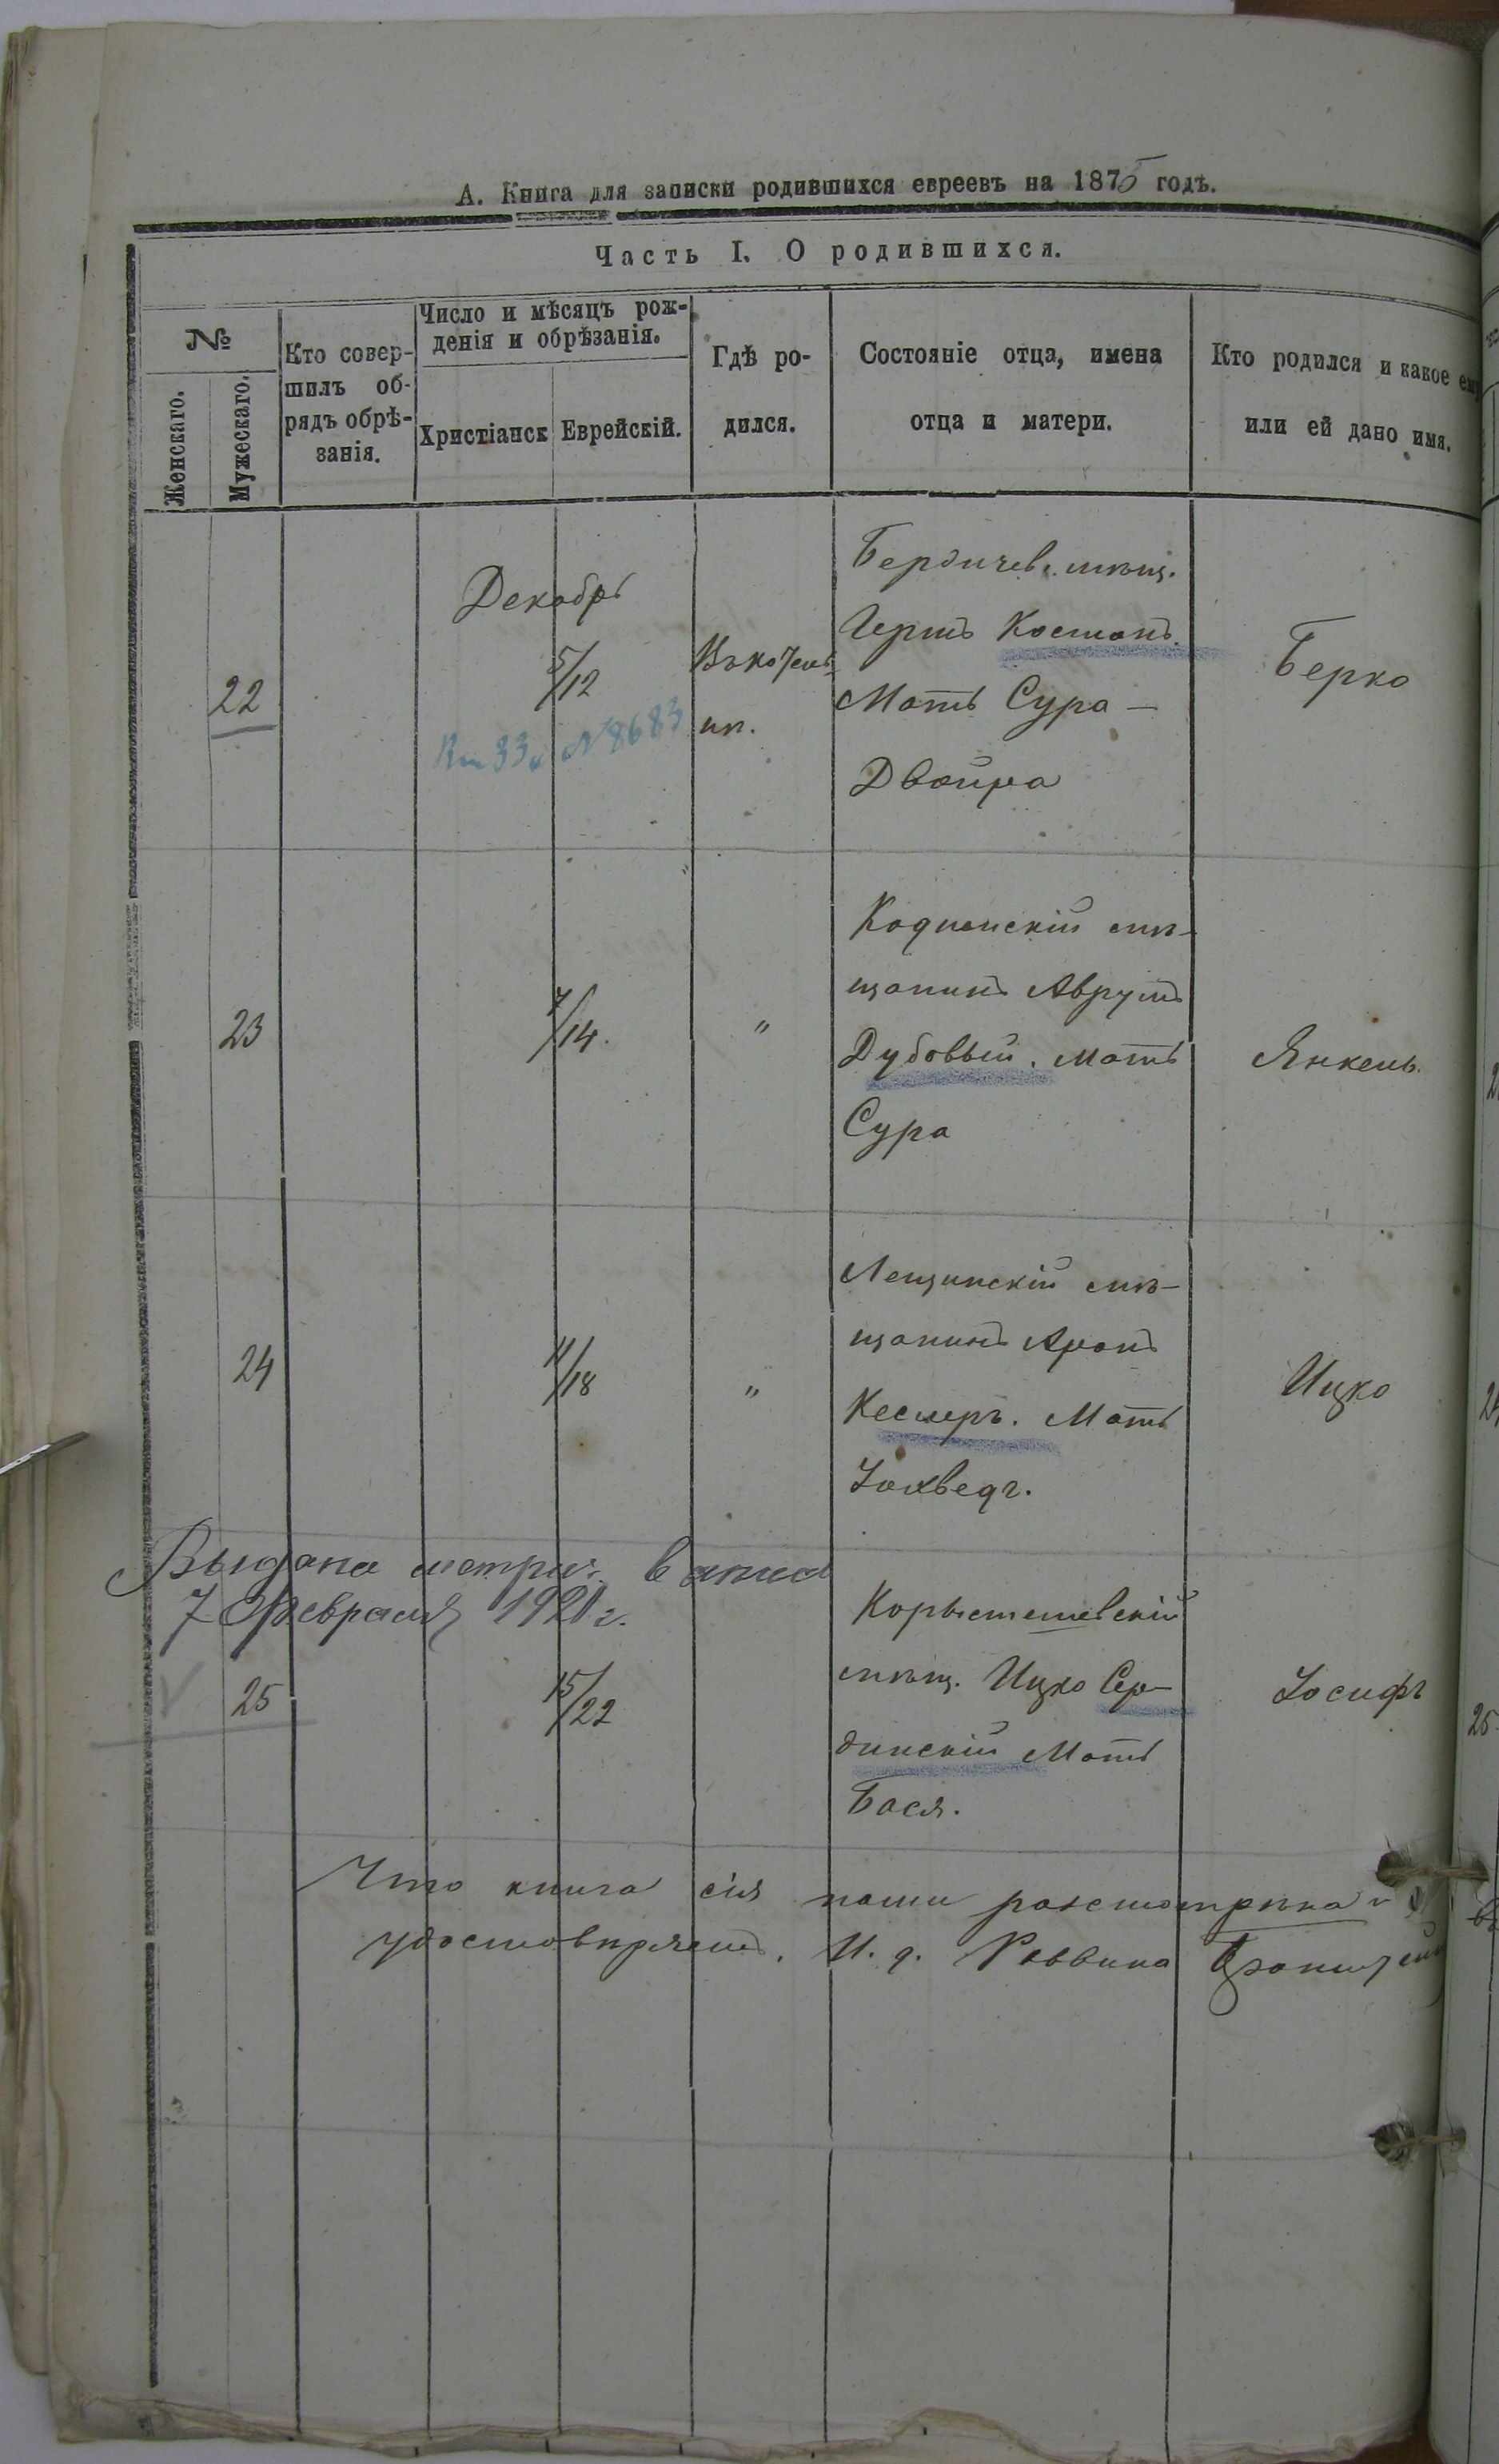 А. Книга для записки родившихся евреевъ на 1875 годъ.
Часть I. О родившихся.
№
Женскаго.
Мужескаго.
Кто совер-
шилъ об-
рядъ обрѣ-
занія.
Число и мѣсяцъ рож-
денія и обрѣзанія.
Христіанск
Еврейскій.
Гдѣ ро-
дился.
Состояніе отца, имена
отца и матери.
Кто родился и какое ему
или ей дано имя.
22
Декабрь
5/12
№ 8683
Бердичев. мѣщ.
Гершъ
Мать Сура –
Двойра
Берко
23
7/14.
"
мѣ-
щанинъ Аврумъ
Дубовый. мать
Сура
Янкель.
24
11/18
"
Лещинскій мѣ-
щанинъ Аронъ
Кеслеръ. Мать
Іохведъ.
Ицко
Выдана метрич. выписа
7 Февраля 1920 г.
25
15/22
Коростешевскій
мѣщ. Ицко Сер-
динскій Мать
Бася.
Іосифъ
Что книга сія нами разсмотрѣна
удостовѣряемъ. И. д. Раввина